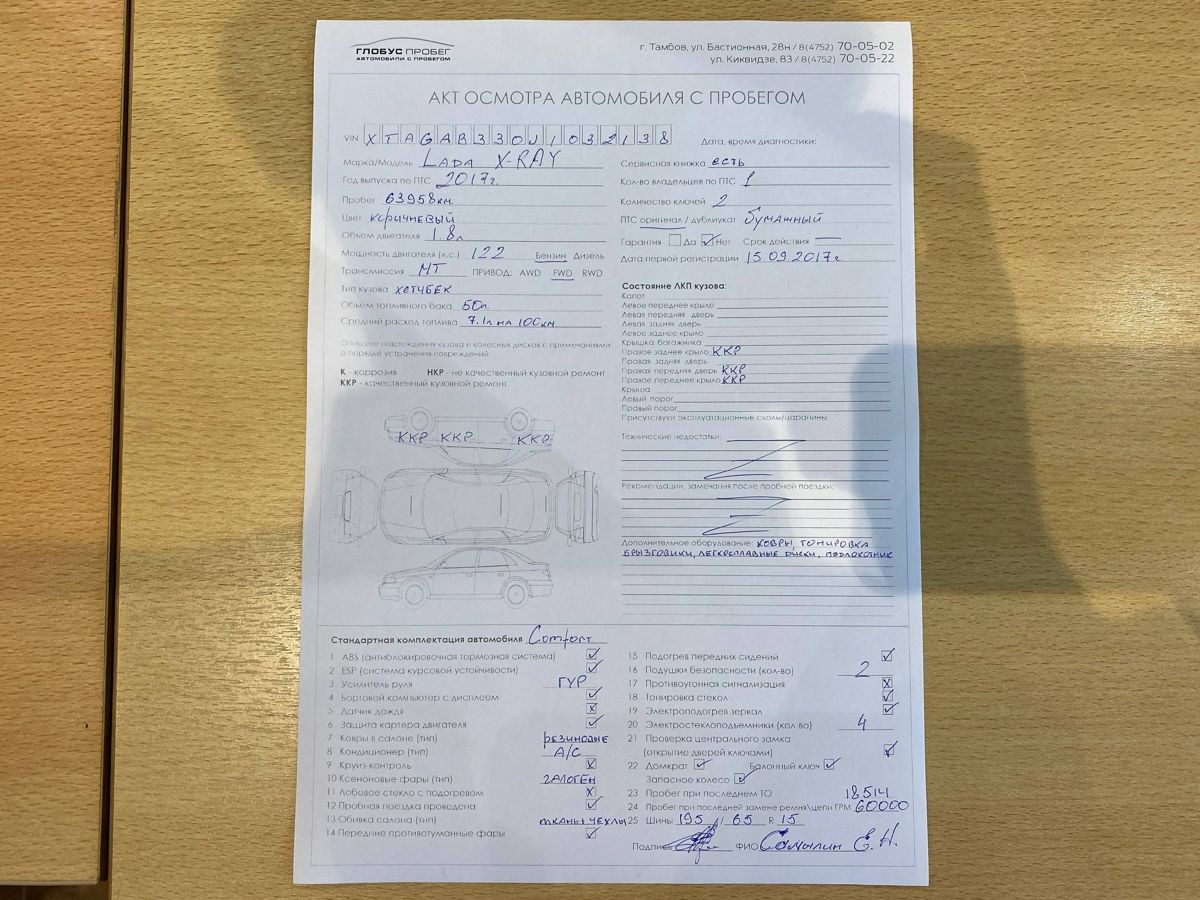 ГЛОБУС ПРОБЕГ
АВТОМОБИЛИ С ПРОБЕГОМ
г. Тамбов, ул. Бастионная, 28н / 8(4752) 70-05-02
ул. Киквидзе, 83 / 8(4752) 70-05-22
АКТ ОСМОТРА АВТОМОБИЛЯ С ПРОБЕГОМ
VIN XTAGAB330J1032138
Дата, время диагностики:
Марка/Модель LADA X-RAY
Год выпуска по ПТС 2017г.
Пробег 63958км.
Цвет коричневый
Объем двигателя 1.8л
Мощность двигателя (л.с.) 122 Бензин Дизель
Трансмиссия МТ ПРИВОД: AWD FWD RWD
Тип кузова хетчбек
Объем топливного бака 50л.
Средний расход топлива 7.1л на 100км
Опишите повреждения кузова и колесных дисков с примечаниями
о порядке устранения повреждений.
К - коррозия НКР - не качественный кузовной ремонт
ККР - качественный кузовной ремонт
ККР ККР ККР
Сервисная книжка есть
Кол-во владельцев по ПТС 1
Количество ключей 2
ПТС оригинал / дубликат бумажный
Гарантия Да Нет Срок действия —
Дата первой регистрации 15.09.2017г.
Состояние ЛКП кузова:
Капот
Левое переднее крыло
Левая передняя дверь
Левая задняя дверь
Левое заднее крыло
Крышка багажника
Правое заднее крыло ККР
Правая задняя дверь
Правая передняя дверь ККР
Правое переднее крыло ККР
Крыша
Левый порог
Правый порог
Присутствуют эксплуатационные сколы/царапины.
Технические недостатки:
Рекомендации, замечания после пробной поездки:
Дополнительное оборудование: ковры, тонировка
брызговики, легкосплавные диски, подлокотник
Стандартная комплектация автомобиля Comfort
1 ABS (антиблокировочная тормозная система)
2 ESP (система курсовой устойчивости)
3 Усилитель руля ГУР
4 Бортовой компьютер с дисплеем
5 Датчик дождя
6 Защита картера двигателя
7 Ковры в салоне (тип) резиновые
8 Кондиционер (тип) A/C
9 Круиз-контроль
10 Ксеноновые фары (тип) галоген
11 Лобовое стекло с подогревом
12 Пробная поездка проведена
13 Обивка салона (тип) ткань/чехлы
14 Передние противотуманные фары
15 Подогрев передних сидений
16 Подушки безопасности (кол-во) 2
17 Противоугонная сигнализация
18 Тонировка стекол
19 Электроподогрев зеркал
20 Электростеклоподъемники (кол-во) 4
21 Проверка центрального замка
(открытие дверей ключами)
22 Домкрат Балонный ключ
Запасное колесо
23 Пробег при последнем ТО 18514
24 Пробег при последней замене ремня\цепи ГРМ 60000
25 Шины 195 / 65 R 15
Подпись ФИО Самылин Е.Н.